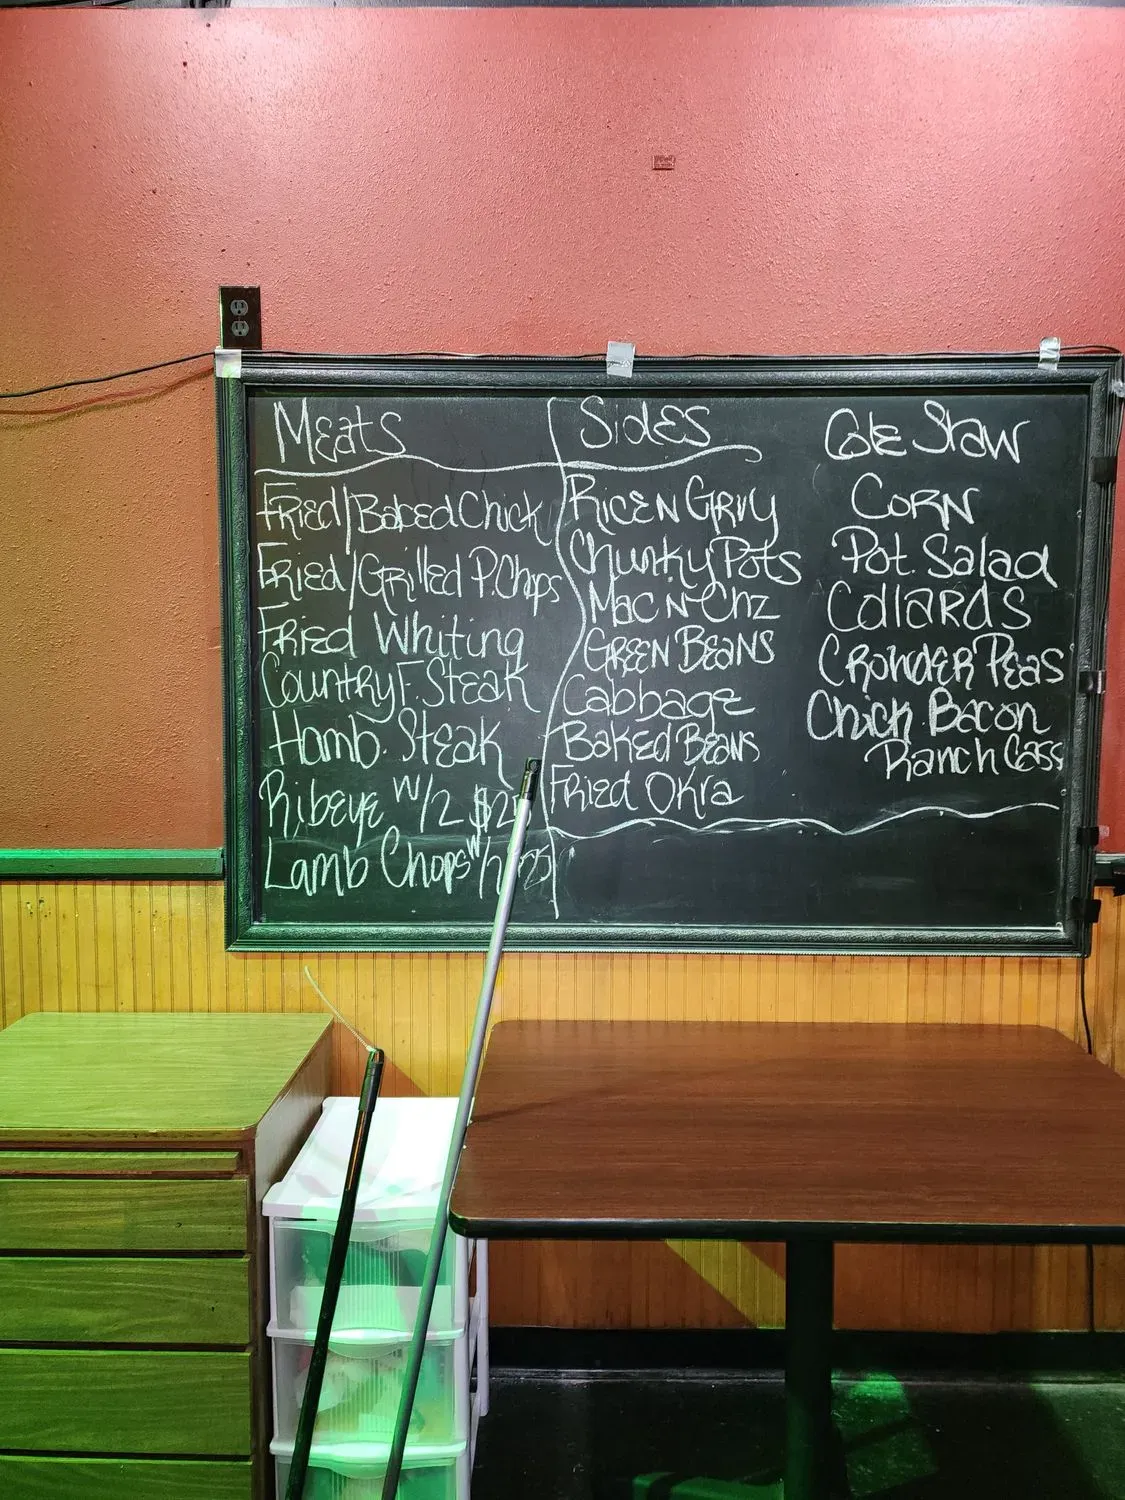 Meats
Fried/Baked Chick
Fried/Grilled P.Chops
Fried Whiting
Country F. Steak
Hamb. Steak
Ribeye w/2
Lamb Chops w/
Sides
Rice N Grvy
Chunky Pots
Mac N Chz
Green Beans
Cabbage
Baked Beans
Fried Okra
Cole Slaw
Corn
Pot. Salad
Collards
Crowder Peas
Chick. Bacon
Ranch Cass